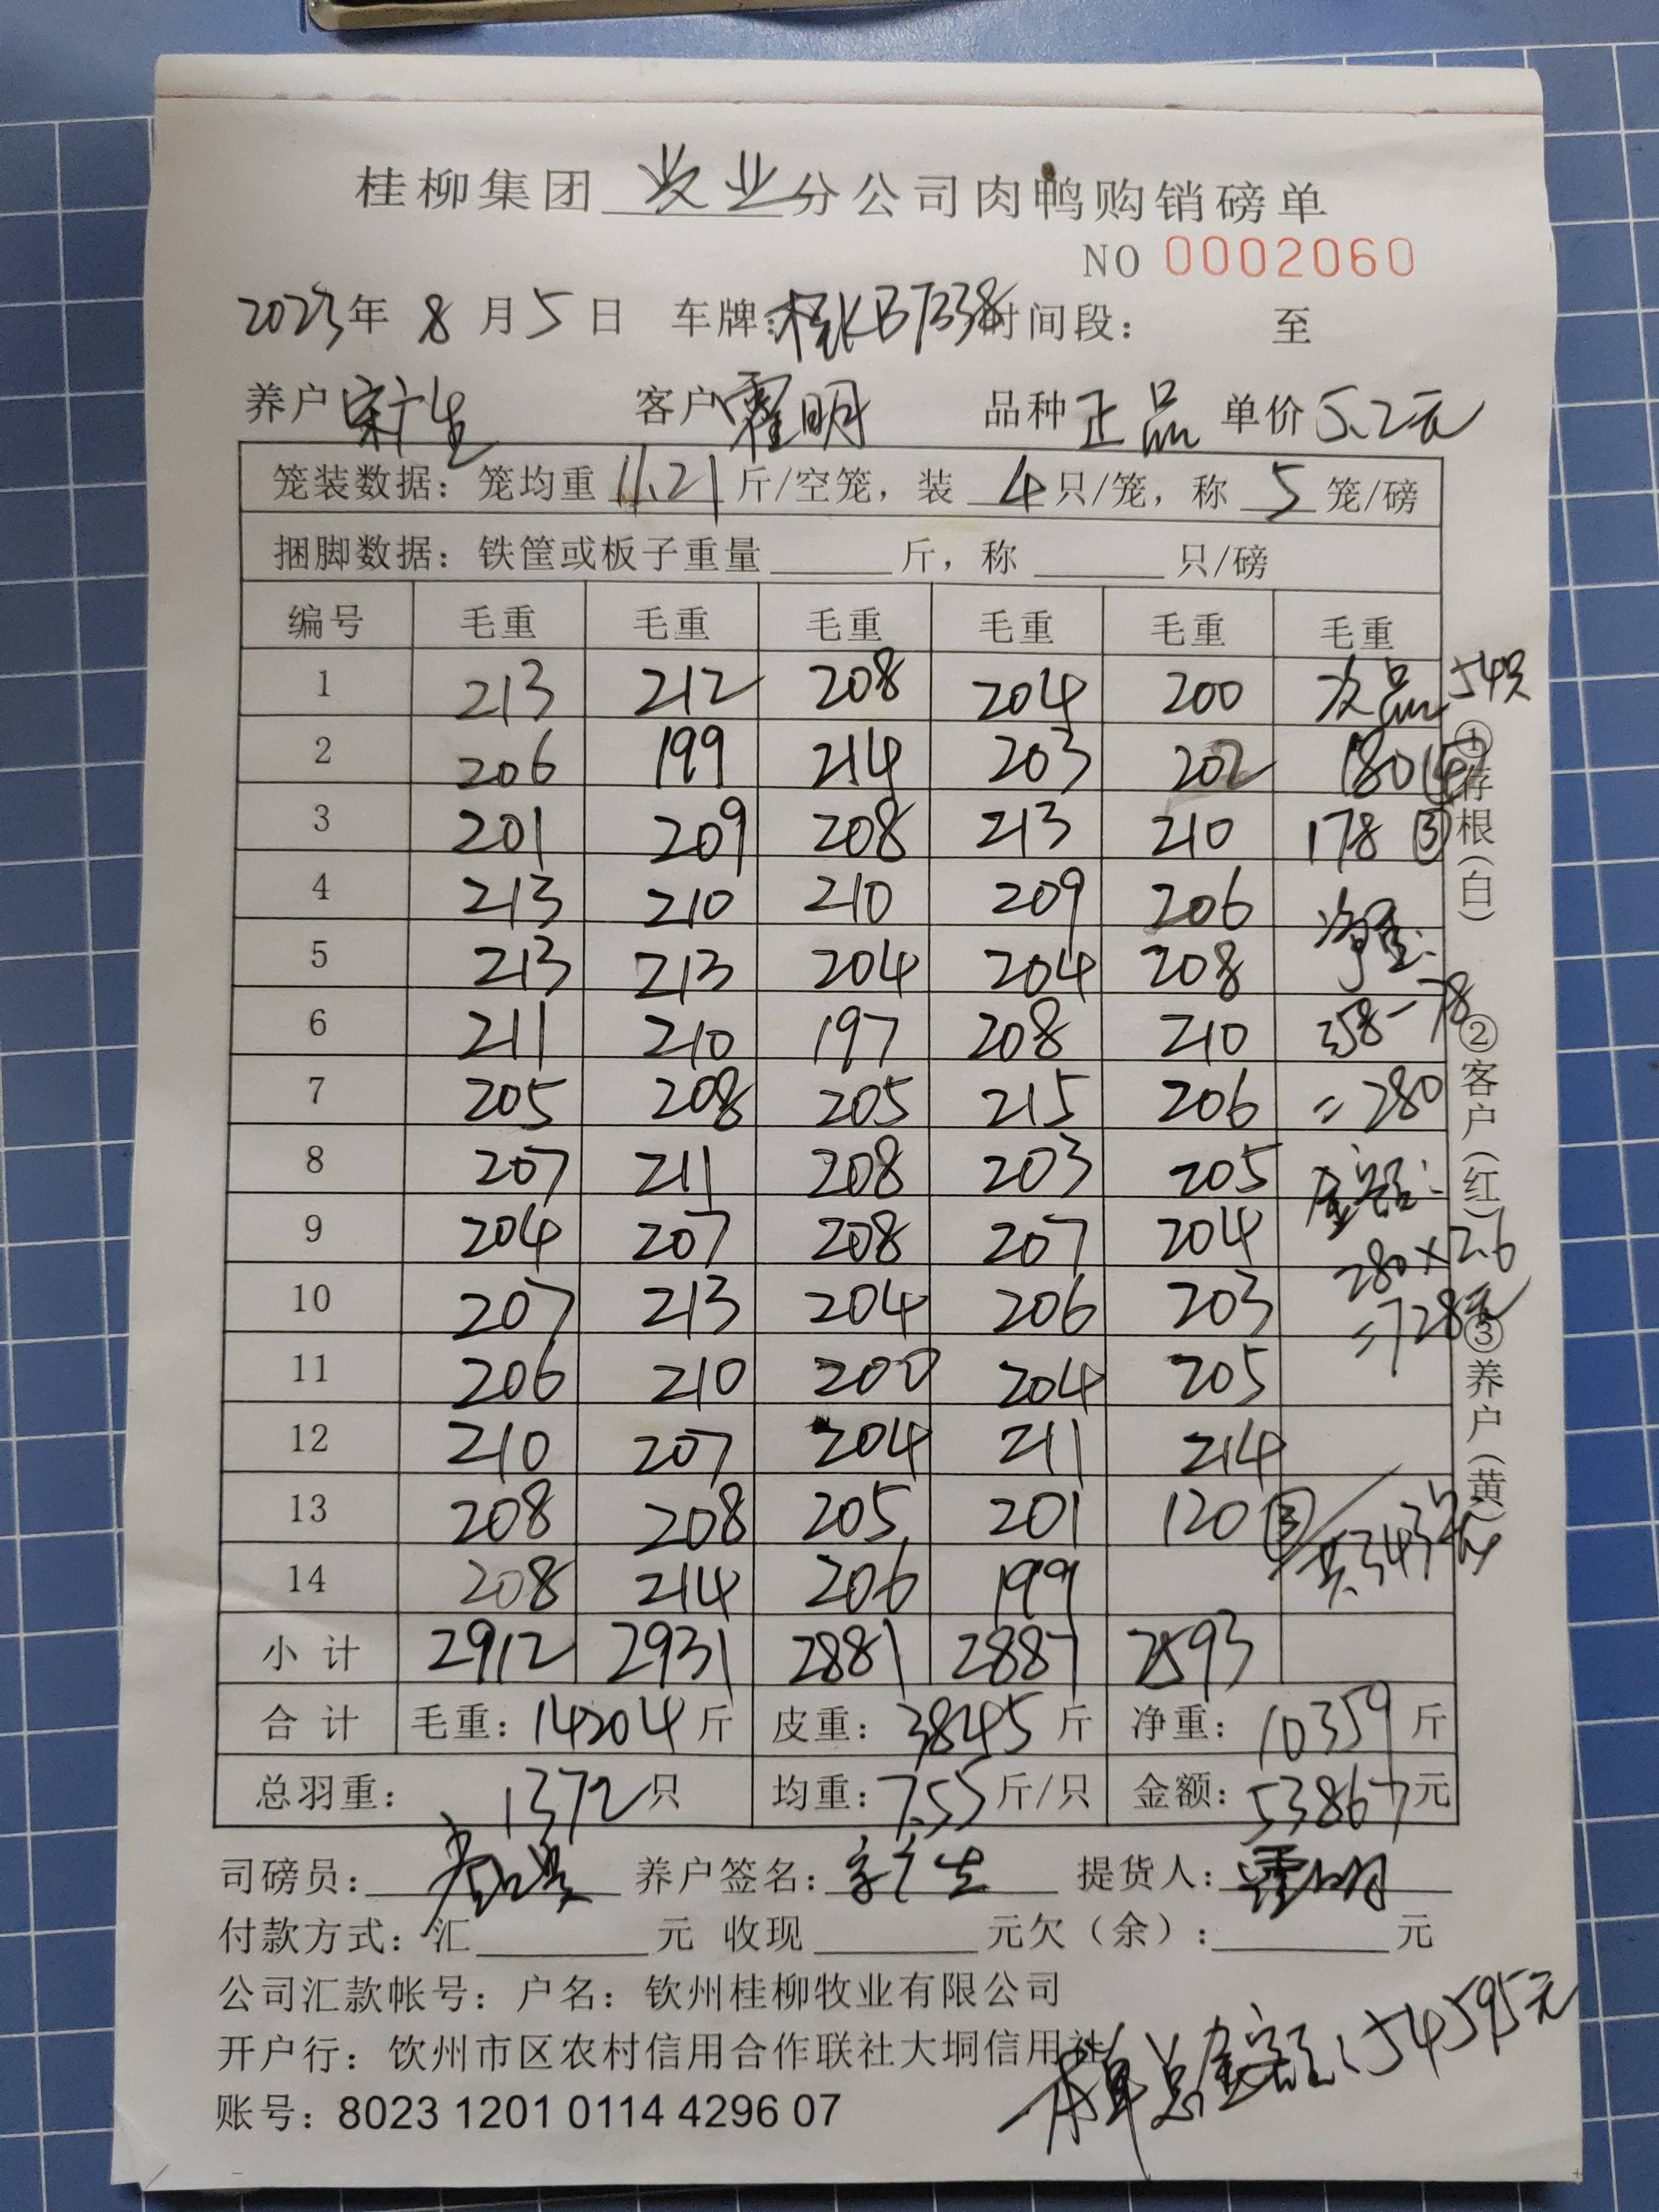 桂柳集团 牧业 分公司肉鸭购销磅单
NO 0002060
2023年 8 月 5 日 车牌: 桂KB7338 时间段: 至
养户 宋广生 客户 霍明 品种 正品 单价 5.2元
笼装数据: 笼均重 11.21 斤/空笼, 装 4 只/笼, 称 5 笼/磅
捆脚数据: 铁筐或板子重量 斤, 称 只/磅
编号 毛重 毛重 毛重 毛重 毛重 毛重
1 213 212 208 204 200 次品 54只
2 206 199 214 203 202 180 (4)
3 201 209 208 213 210 178 ③
4 213 210 210 209 206 净重:
5 213 213 204 204 208
6 211 210 197 208 210 358-78
7 205 208 205 215 206 =280
8 207 211 208 203 205 金额:
9 204 207 208 207 204 280×2.6
10 207 213 204 206 203 =728元
11 206 210 200 204 205
12 210 207 204 211 214
13 208 208 205 201 120 ③ 共343笼
14 208 214 206 199
小计 2912 2931 2881 2887 2593
合计 毛重: 14204 斤 皮重: 3845 斤 净重: 10359 斤
总羽重: 1372 只 均重: 7.55 斤/只 金额: 53867 元
①存根(白) ②客户(红) ③养户(黄)
司磅员: 养户签名: 宋广生 提货人: 霍明
付款方式: 汇 元 收现 元欠(余): 元
公司汇款帐号: 户名: 钦州桂柳牧业有限公司
开户行: 钦州市区农村信用合作联社大垌信用社
本单总金额: 54595元
账号: 8023 1201 0114 4296 07